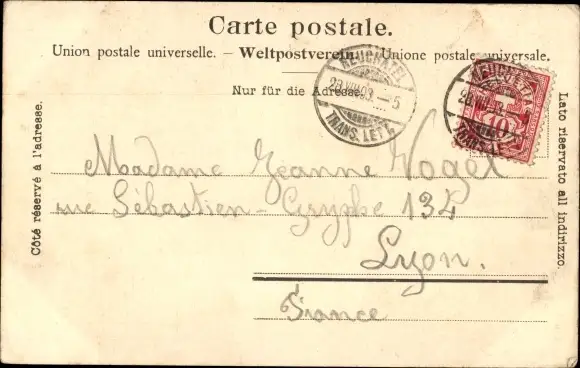 Carte postale.
Union postale universelle. – Weltpostverein. – Unione postale universale.
Nur für die Adresse.
NEUCHATEL
TRANS. LETT.
NEUCHATEL
10
Côté réservé à l'adresse.
Lato riservato all indirizzo.
Madame Jeanne Vogel
rue Sébastien-Gryphe 134
Lyon.
France